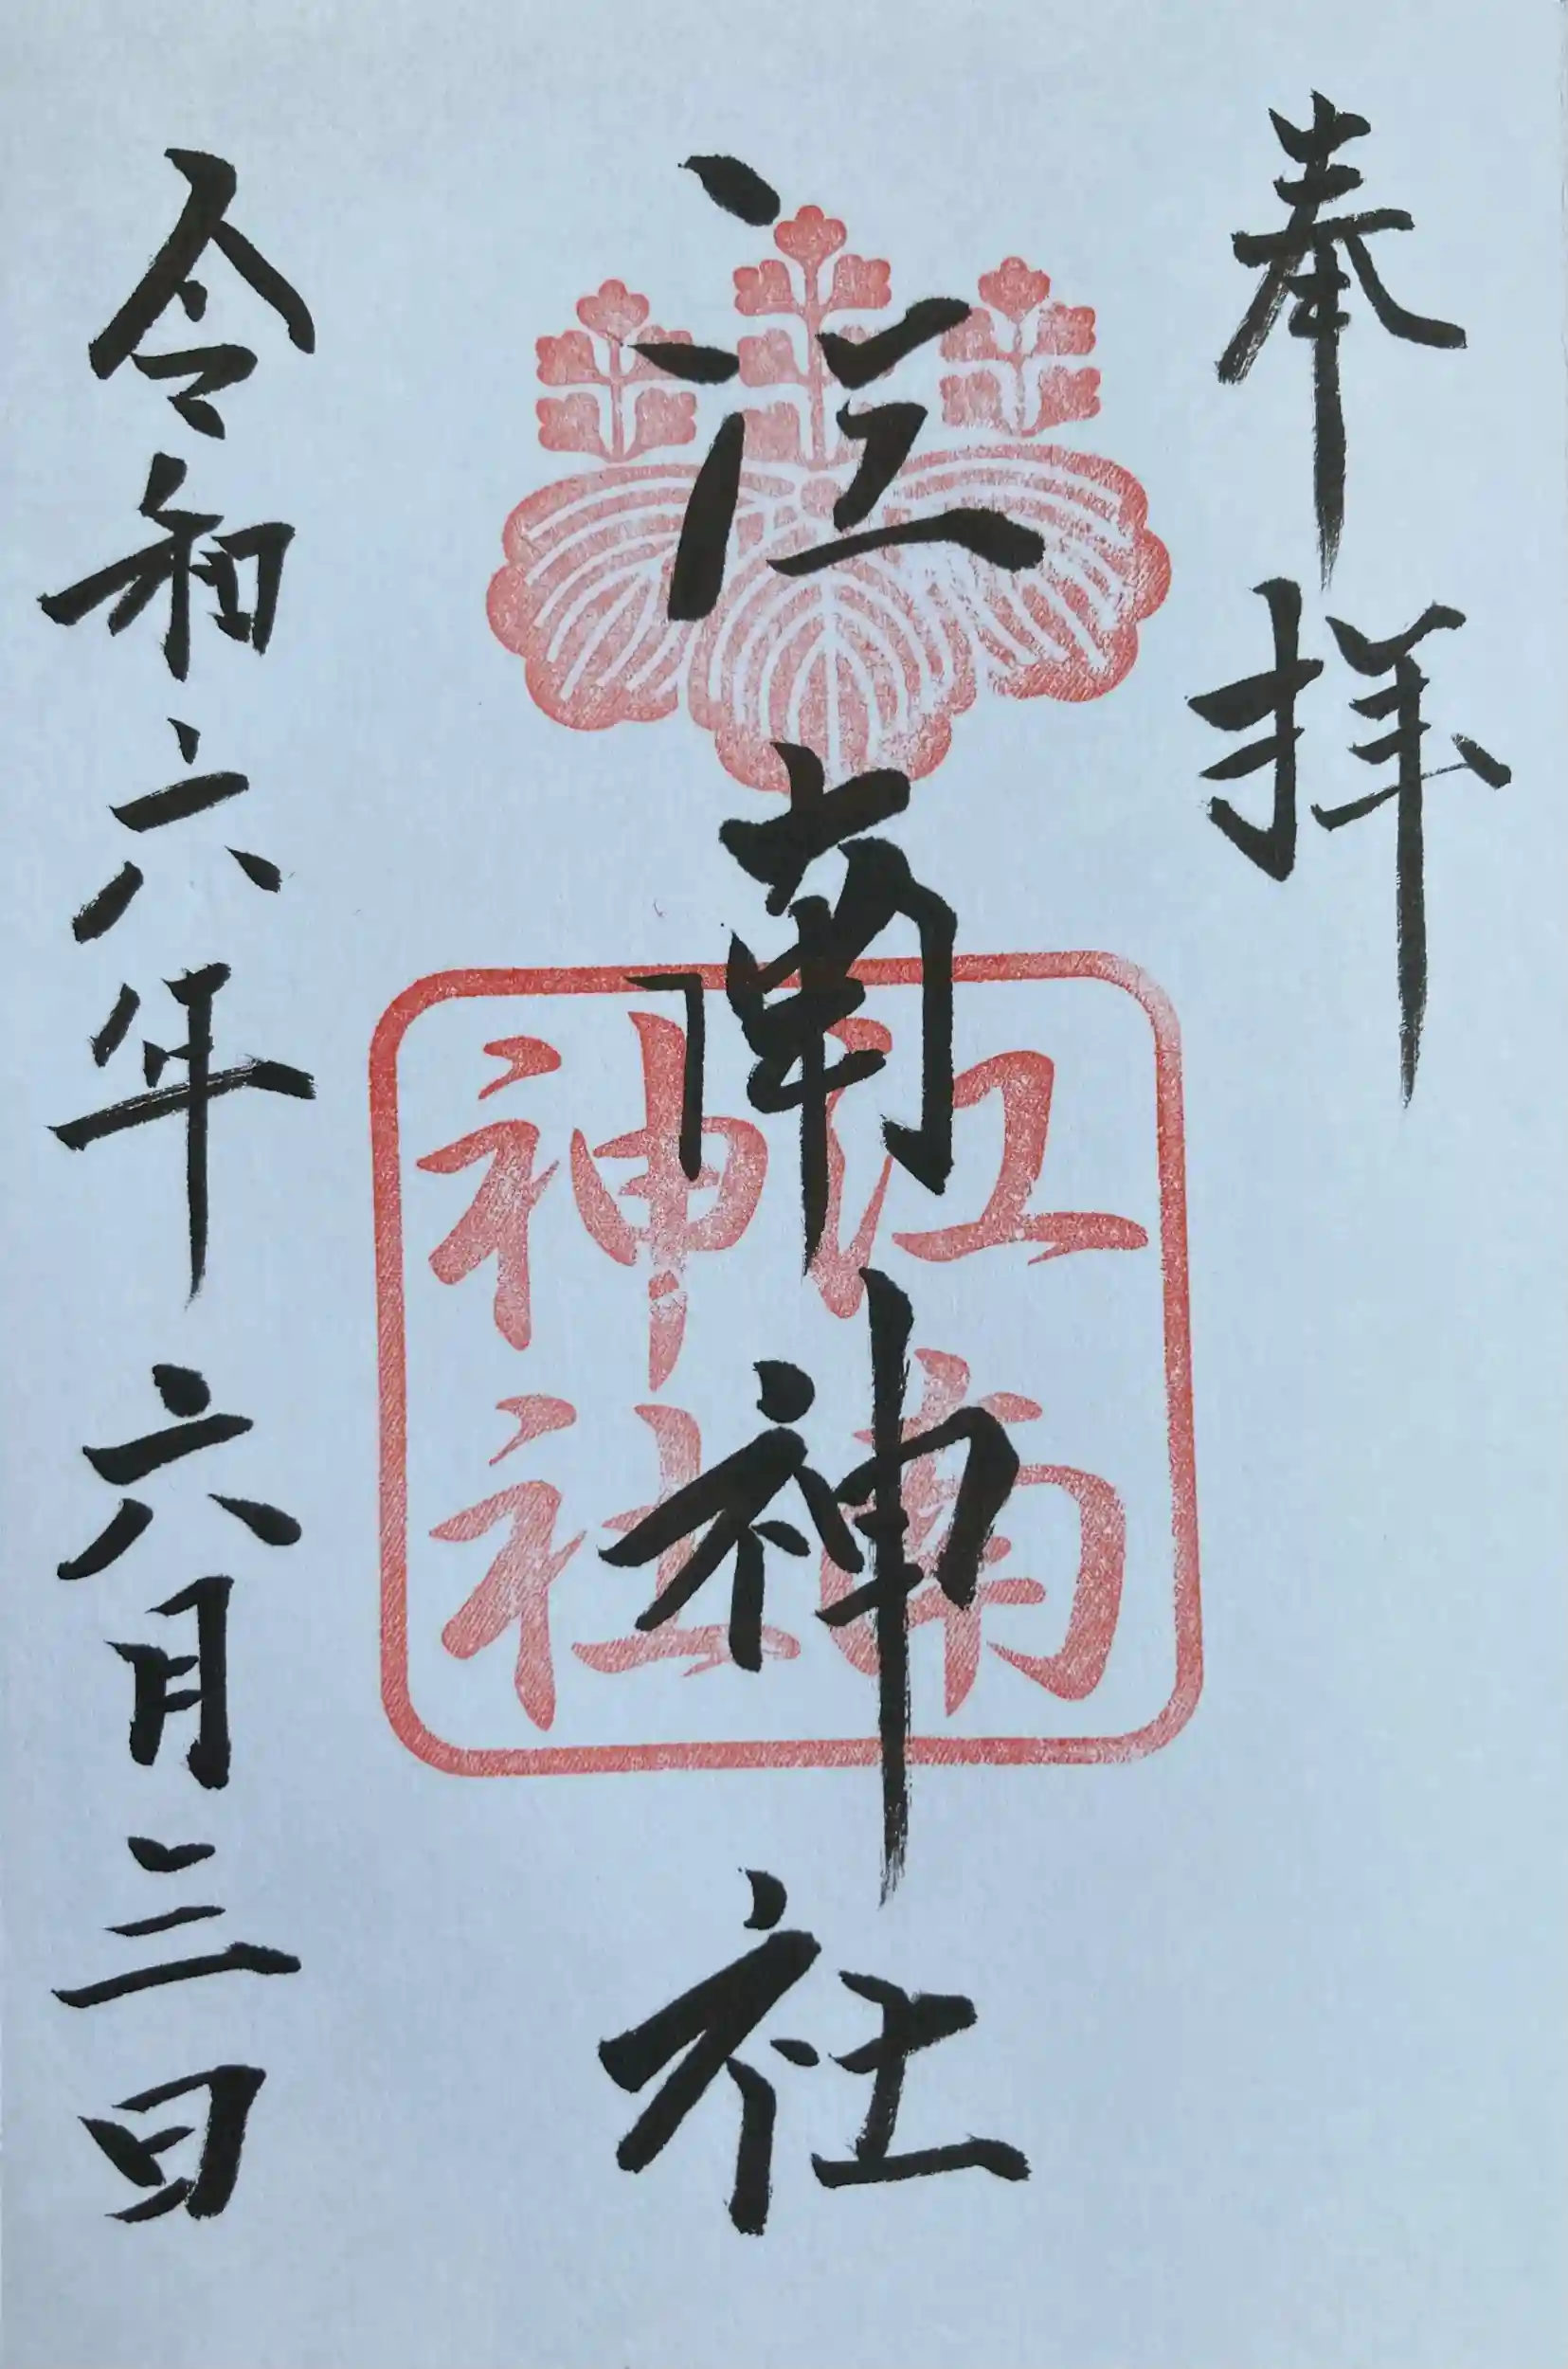 奉拝
江南神社
江南神社
令和六年 六月三日